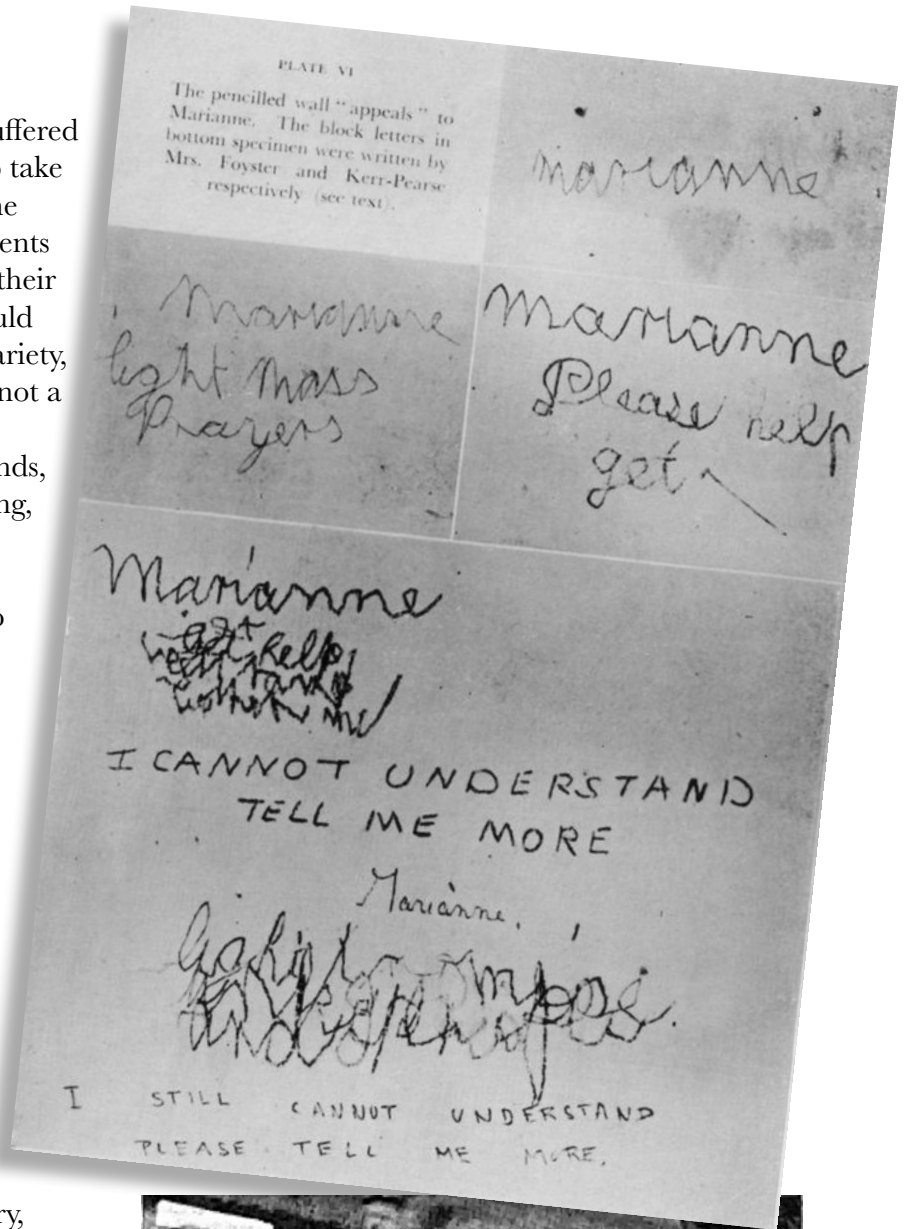 uffered
take
ents
their
uld
ariety,
not a
nds,
ng,
ry,
PLATE VI
The pencilled wall "appeals" to
Marianne. The block letters in
bottom specimen were written by
Mrs. Foyster and Kerr-Pearse
respectively (see text).
marianne
Marianne
light mass
Prayers
Marianne
Please help
get
Marianne
get help
me
I CANNOT UNDERSTAND
TELL ME MORE
Marianne.
I STILL CANNOT UNDERSTAND
PLEASE TELL ME MORE.